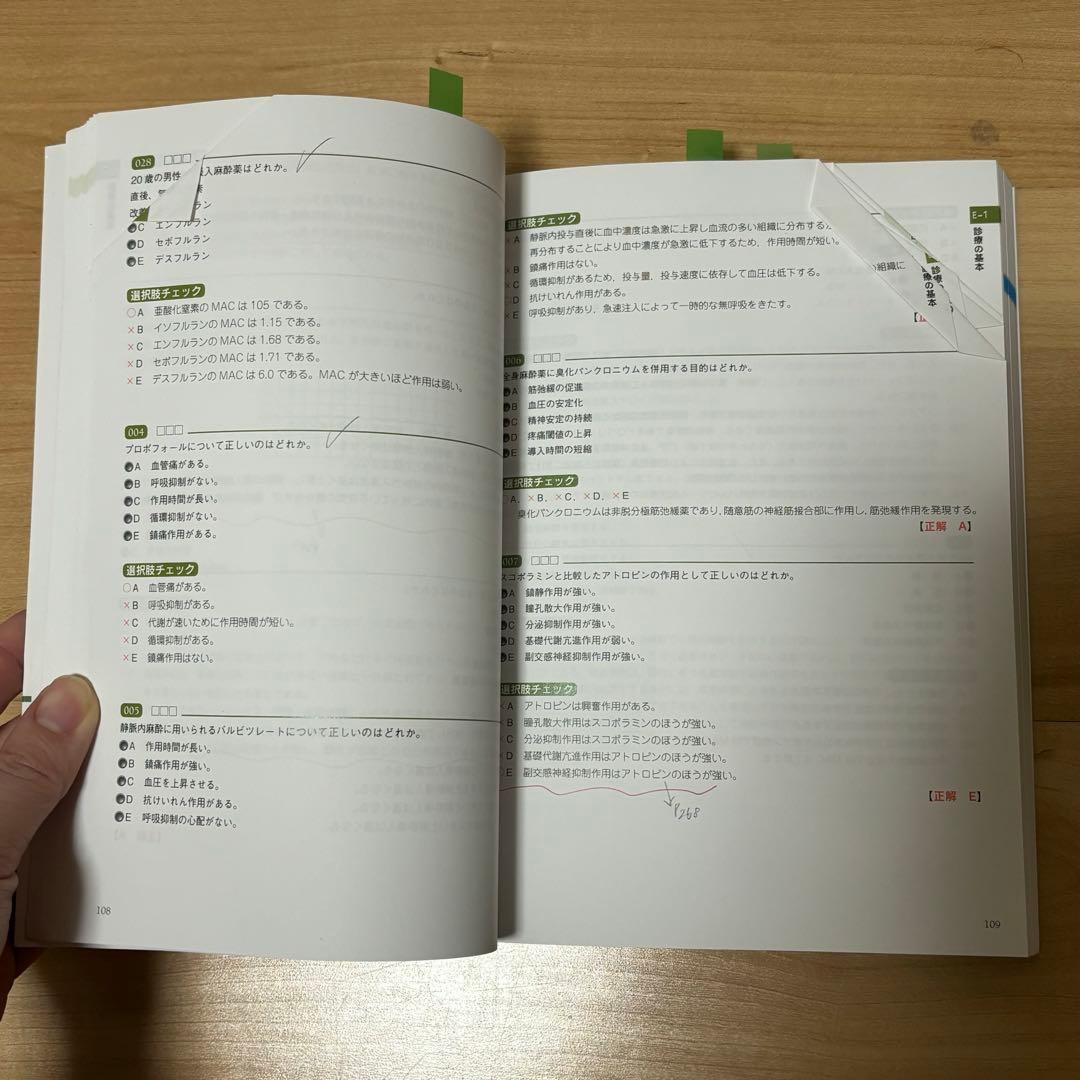 028 □□□
20歳の男性
入麻酔薬はどれか。
直後、
改善
ラン
C エンフルラン
D セボフルラン
E デスフルラン
選択肢チェック
○A 亜酸化窒素のMACは105である。
×B イソフルランのMACは1.15である。
×C エンフルランのMACは1.68である。
×D セボフルランのMACは1.71である。
×E デスフルランのMACは6.0である。MACが大きいほど作用は弱い。
004 □□□
プロポフォールについて正しいのはどれか。
A 血管痛がある。
B 呼吸抑制がない。
C 作用時間が長い。
D 循環抑制がない。
E 鎮痛作用がある。
選択肢チェック
○A 血管痛がある。
×B 呼吸抑制がある。
×C 代謝が速いために作用時間が短い。
×D 循環抑制がある。
×E 鎮痛作用はない。
005 □□□
静脈内麻酔に用いられるバルビツレートについて正しいのはどれか。
A 作用時間が長い。
B 鎮痛作用が強い。
C 血圧を上昇させる。
D 抗けいれん作用がある。
E 呼吸抑制の心配がない。
108
E-1
診療の基本
選択肢チェック
×A 静脈内投与直後に血中濃度は急激に上昇し血流の多い組織に分布する
再分布することにより血中濃度が急激に低下するため、作用時間が短い。
×B 鎮痛作用はない。
×C 循環抑制があるため、投与量、投与速度に依存して血圧は低下する。
D 抗けいれん作用がある。
×E 呼吸抑制があり、急速注入によって一時的な無呼吸をきたす。
組織に
療の基本
006 □□□
全身麻酔薬に臭化パンクロニウムを併用する目的はどれか。
A 筋弛緩の促進
B 血圧の安定化
C 精神安定の持続
D 疼痛閾値の上昇
E 導入時間の短縮
選択肢チェック
A，×B，×C，×D，×E
臭化パンクロニウムは非脱分極筋弛緩薬であり，随意筋の神経筋接合部に作用し，筋弛緩作用を発現する。
【正解 A】
007 □□□
スコポラミンと比較したアトロピンの作用として正しいのはどれか。
A 鎮静作用が強い。
B 瞳孔散大作用が強い。
C 分泌抑制作用が強い。
D 基礎代謝亢進作用が弱い。
E 副交感神経抑制作用が強い。
選択肢チェック
×A アトロピンは興奮作用がある。
B 瞳孔散大作用はスコポラミンのほうが強い。
×C 分泌抑制作用はスコポラミンのほうが強い。
×D 基礎代謝亢進作用はアトロピンのほうが強い。
E 副交感神経抑制作用はアトロピンのほうが強い。
【正解 E】
P268
109